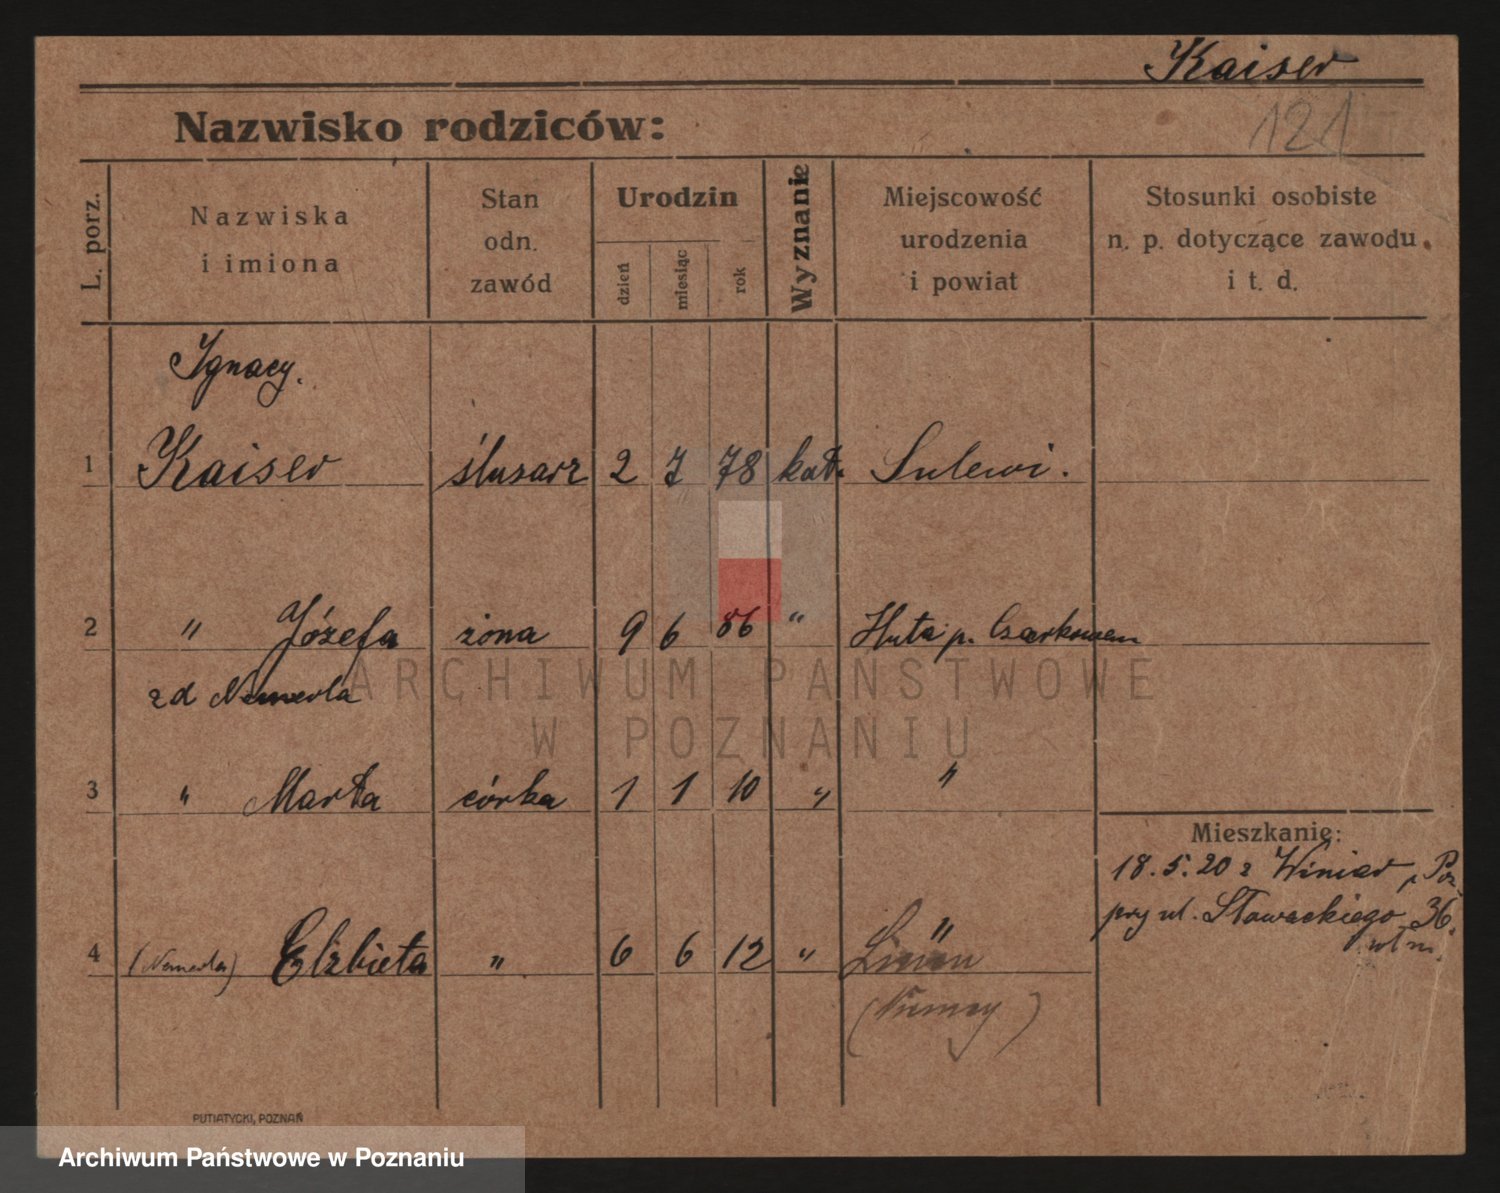 Kaiser
121
Nazwisko rodziców:
L. porz.
Nazwiska
i imiona
Stan
odn.
zawód
Urodzin
dzień
miesiąc
rok
Wyznanie
Miejscowość
urodzenia
i powiat
Stosunki osobiste
n. p. dotyczące zawodu
i t. d.
Ignacy.
1 Kaiser ślusarz 2 7 78 kat. Sulewi.
2 " Józefa żona 9 6 86 " Huta p. Czarkowem
z d
3 " Marta córka 1 1 10 " "
Mieszkanie:
18.5.20 z Winiar p. Poz.
przy ul. Słowackiego 36.
"
4 Elżbieta " 6 6 12 "
(Niemcy)
PUTIATYCKI, POZNAŃ
ARCHIWUM PAŃSTWOWE
W POZNANIU
Archiwum Państwowe w Poznaniu